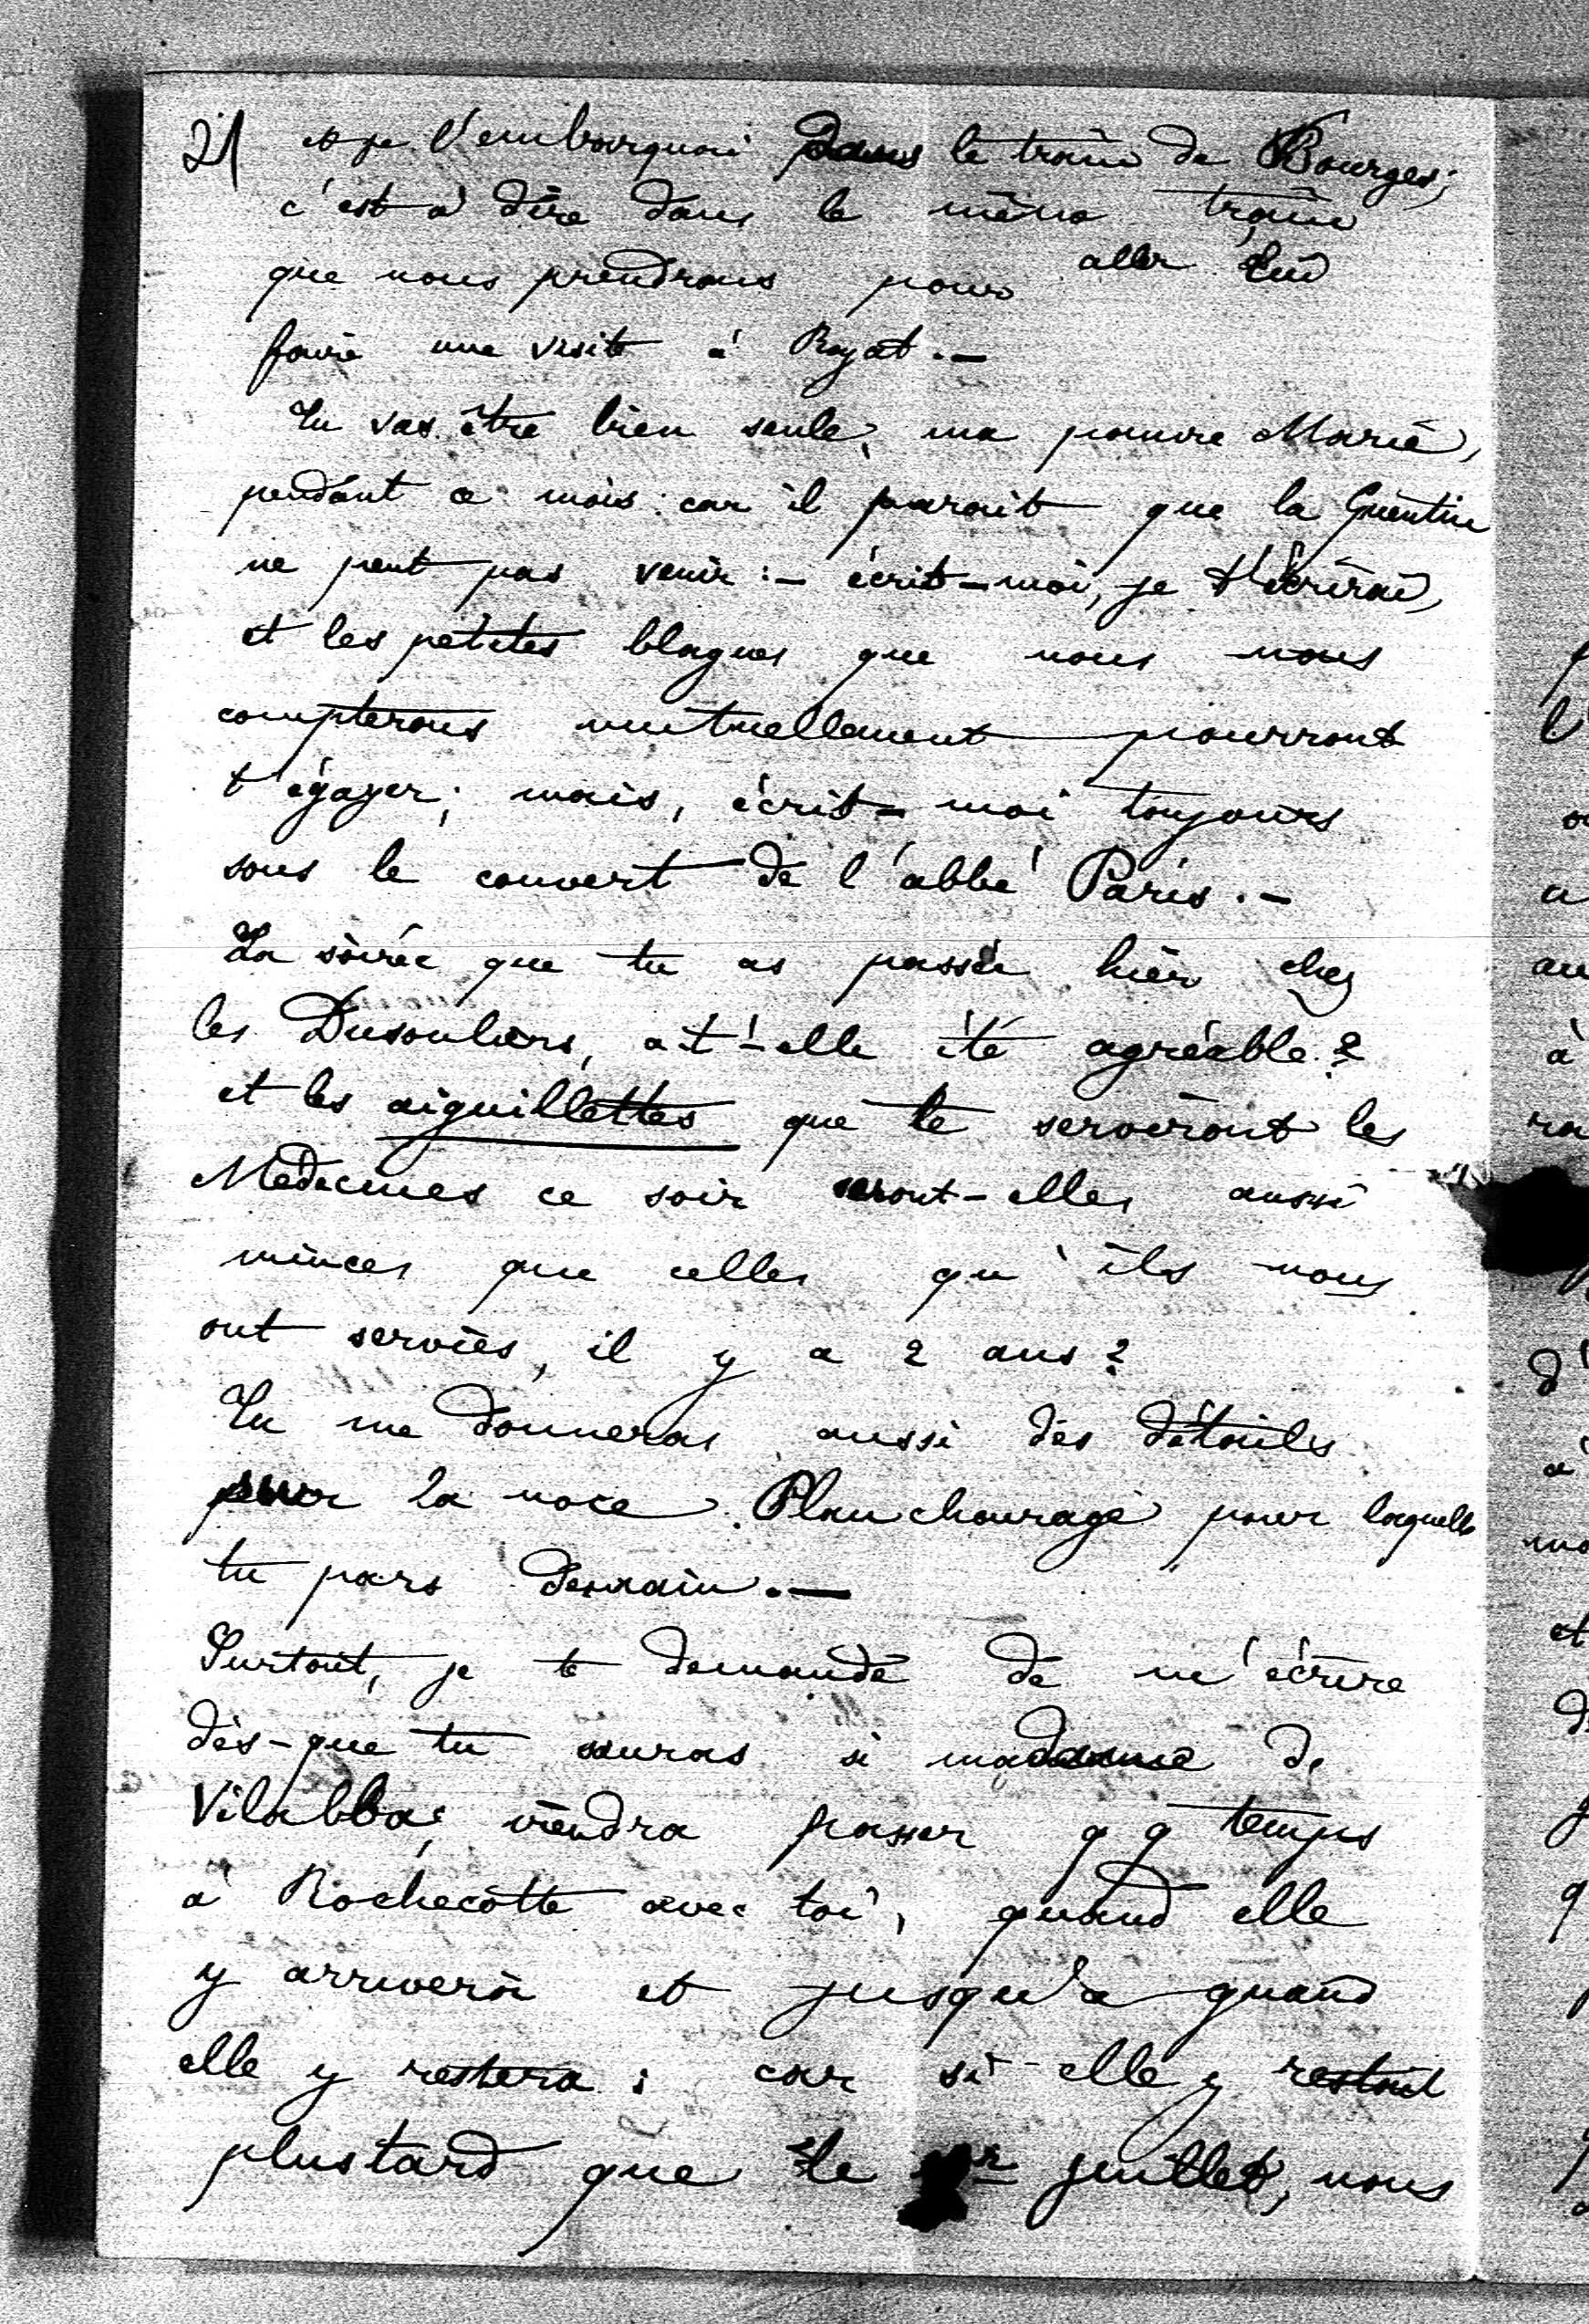 21 et je l'embarquai dans le train de Bourges;
c'est à dire dans le même train
que nous prendrons pour aller lui
faire une visite à Royat.-
Tu vas être bien seule, ma pauvre Marie,
pendant ce mois: car il parait que la Guentin
ne peut pas venir:- écrit-moi, je t'écrirai,
et les petites blagues que nous nous
compterons mutuellement pourront
t'égayer; mais, écrit-moi toujours
sous le couvert de l'abbé Paris.-
La soirée que tu as passée hier chez
les Dusouliers, a-t'-elle été agréable?
et les aiguillettes que te serviront les
Médecines ce soir seront-elles aussi
minces que celles qu'ils nous
ont servies, il y a 2 ans?
Tu me donneras aussi des détails
sur la noce Planchourage pour laquelle
tu pars demain.-
Surtout, je te demande de m'écrire
dès-que tu sauras si madame de
Vilabba; viendra passer qq temps
à Rochecotte avec toi, quand elle
y arrivera et jusqu'à quand
elle y restera: car si elle y restait
plustard que le juillet, nous